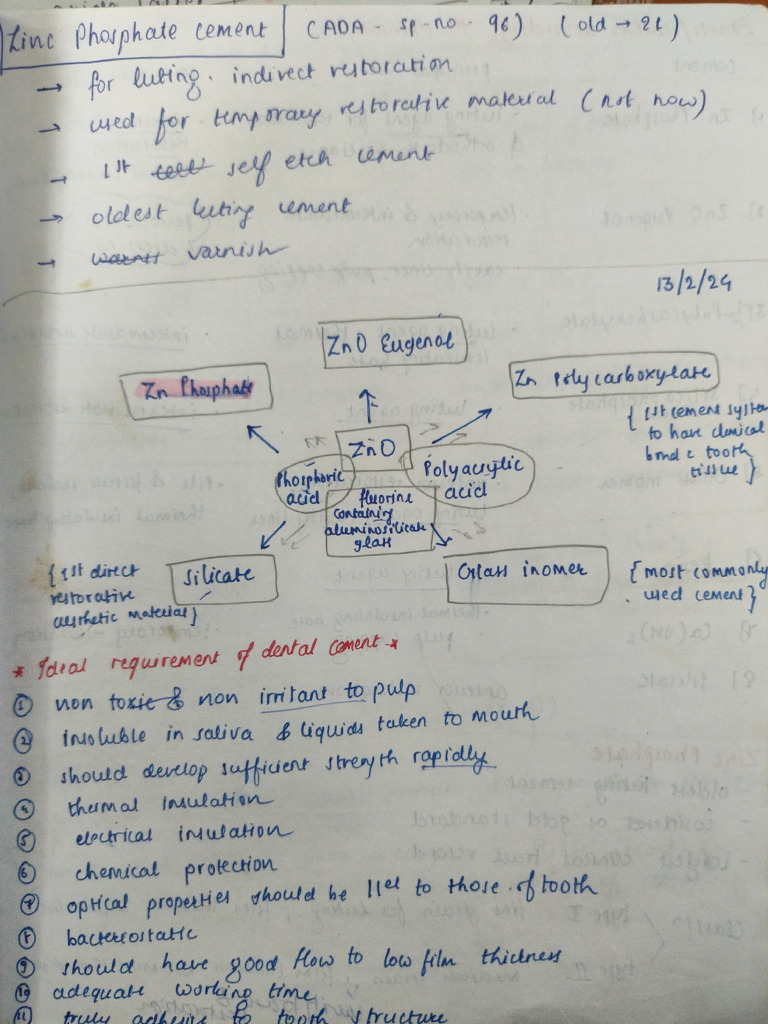 Zinc Phosphate cement (ADA - sp. no. 96) (old → 21)
→ for luting. indirect restoration
→ used for temporary restorative material (not now)
→ 1st self etch cement
→ oldest luting cement
→ varnish
13/2/24
ZnO Eugenol
Zn Phosphate
Zn Polycarboxylate
{ 1st cement system
to have clinical
bond c tooth
tissue }
ZnO
Phosphoric
acid
Polyacrylic
acid
fluorine
containing
aluminosilicate
glass
silicate
{ 1st direct
restorative
aesthetic material }
Glass inomer
{ most commonly
used cement }
* Ideal requirement of dental cement *
① non toxic & non irritant to pulp
② insoluble in saliva & liquids taken to mouth
③ should develop sufficient strength rapidly
④ thermal insulation
⑤ electrical insulation
⑥ chemical protection
⑦ optical properties should be llel to those of tooth
⑧ bacteriostatic
⑨ should have good flow to low film thickness
⑩ adequate working time
⑪ truly adhesive to tooth structure